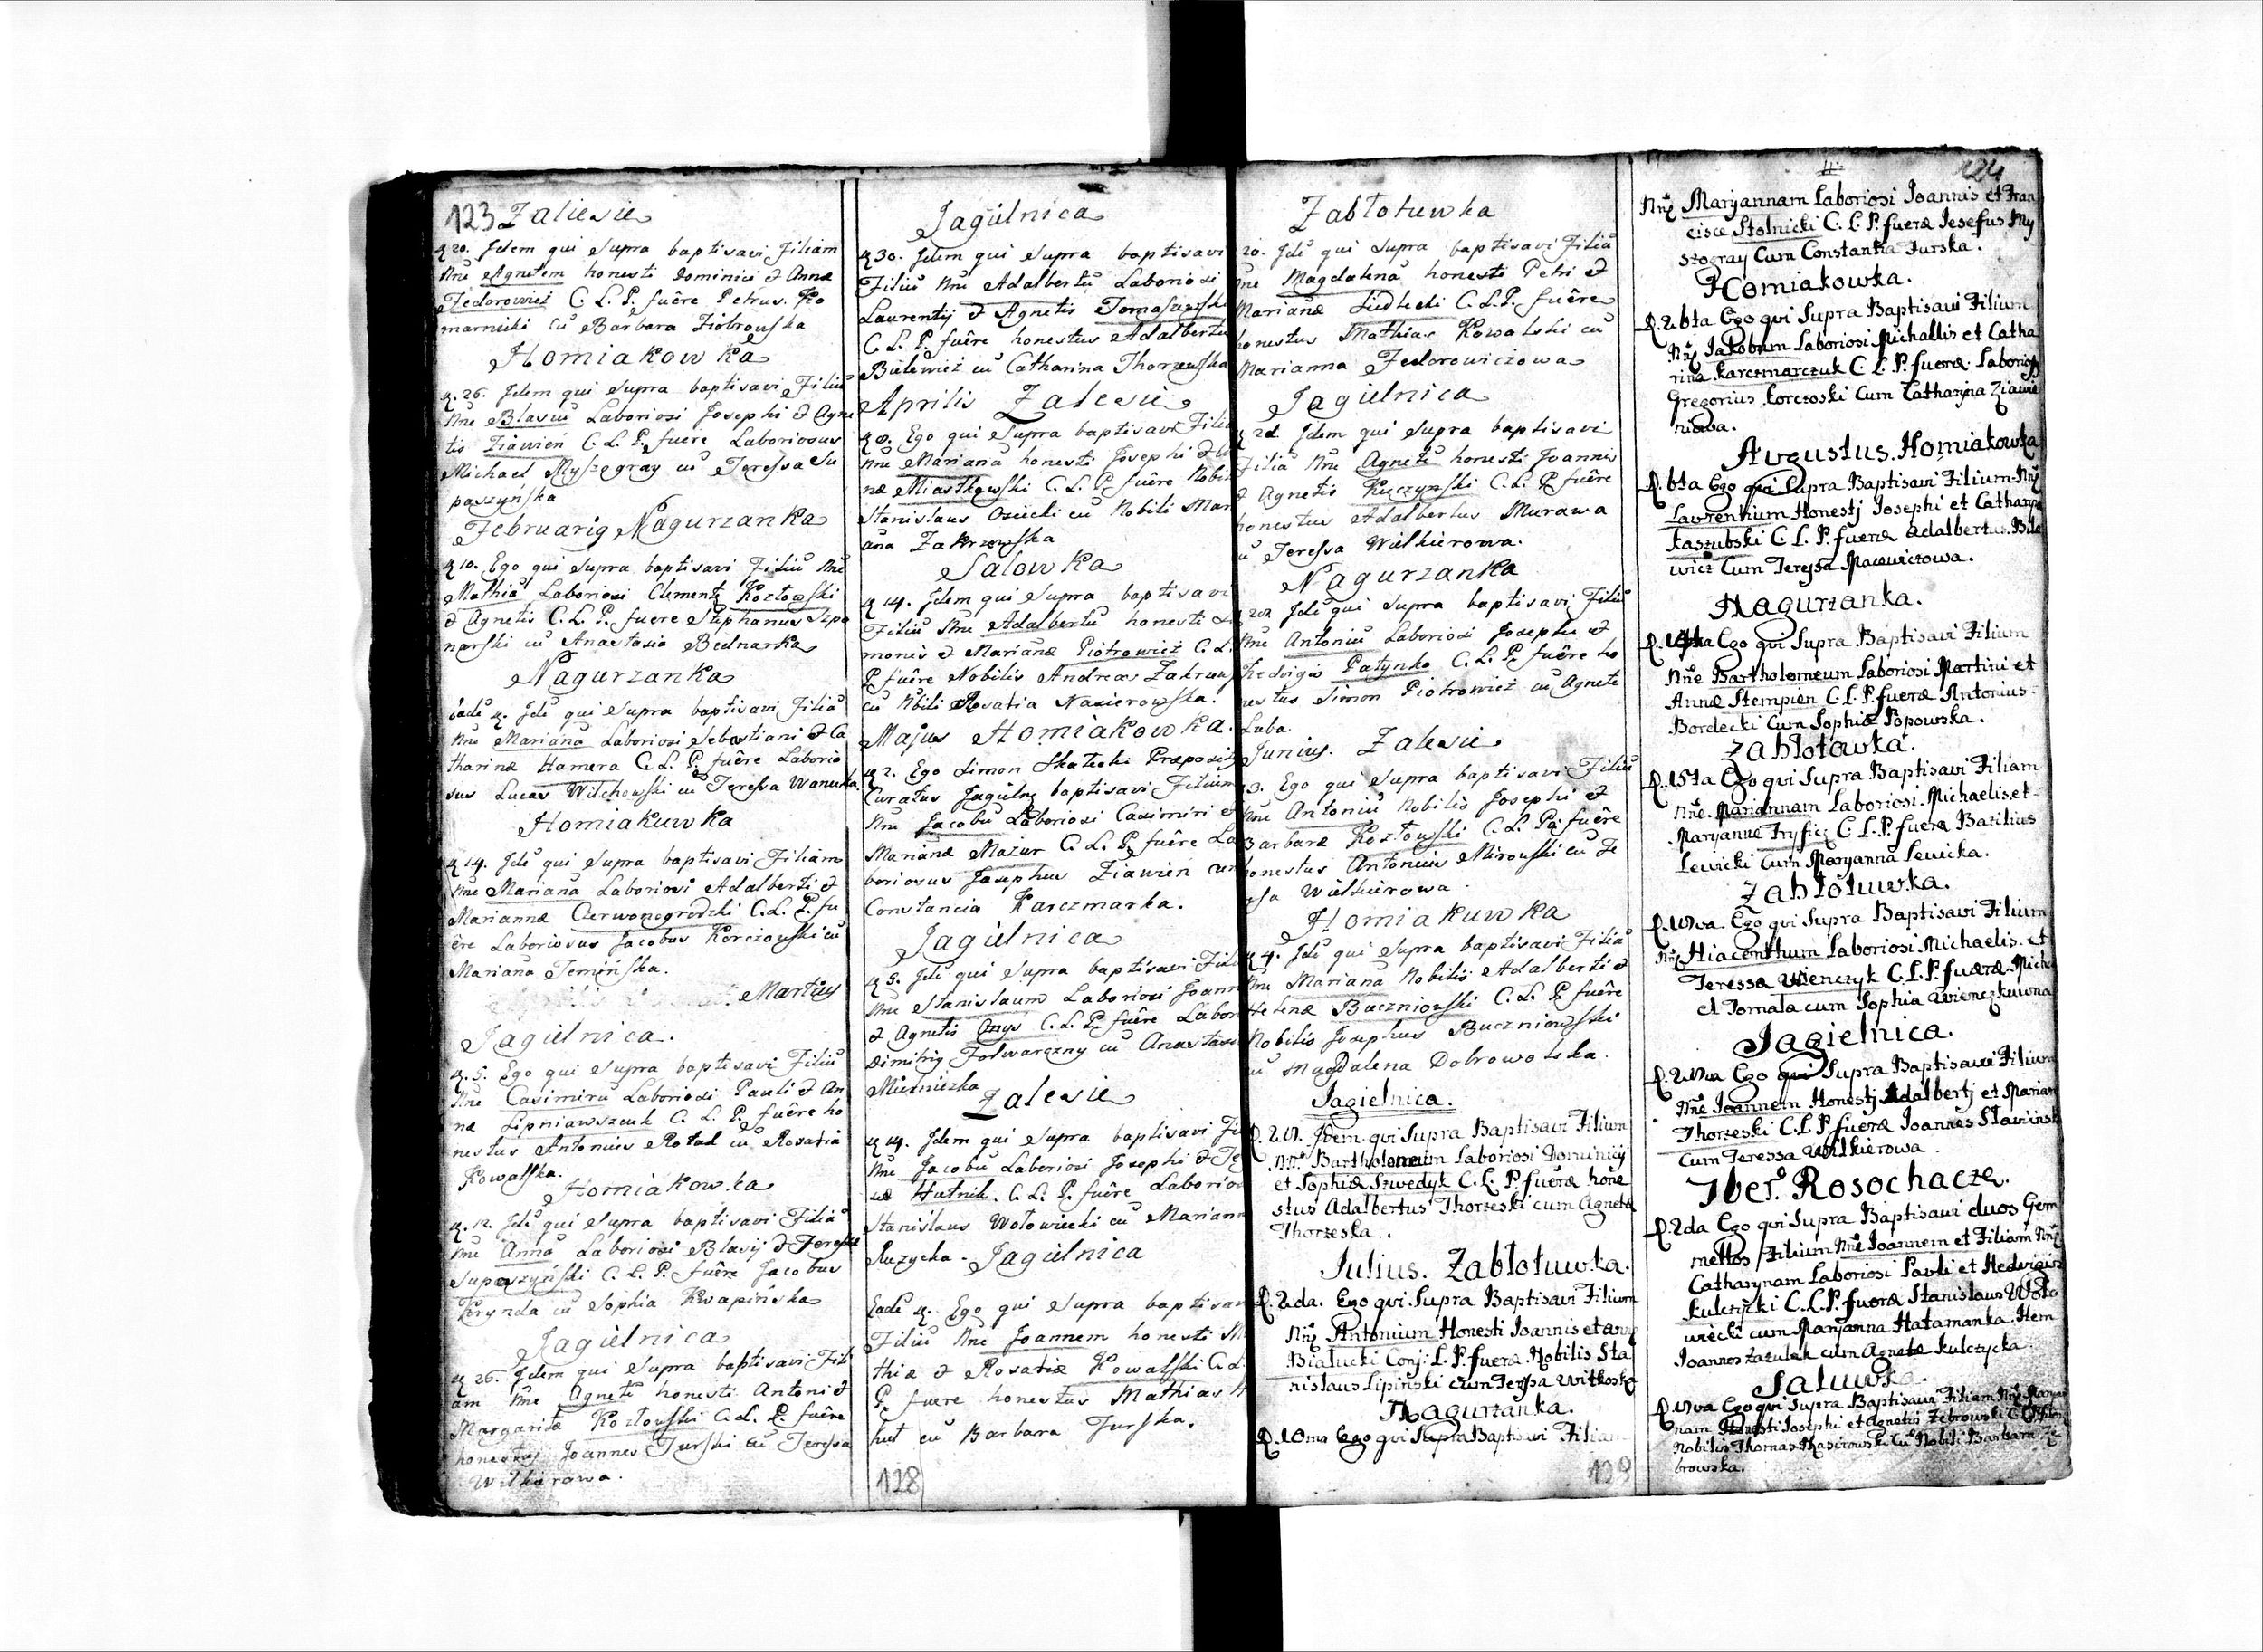 123 Zaliesie
q 20. Idem qui Supra baptisavi Filiam
Nne Agnetem honesti Dominici & Annæ
Fedorowicz C. L. P. fuêre Petrus Ko
marnicki cũ Barbara Ziobrowska
Homiakowka
q. 26. Idem qui Supra baptisavi Filiũ
Nne Blasiũ Laboriosi Josephi & Agne
tis Ziawien C. L. P. fuêre Laboriosus
Michael Myszogray cũ Teressa Su
paszynska
Februarij Nagurzanka
q 10. Ego qui Supra baptisavi Filiũ Nne
Mathiã Laboriosi Clementis Kozłowski
& Agnetis C. L. P. fuere Stephanus Szpo
narski cũ Anastasia Bednarka
Nagurzanka
Eadẽ q. Idẽ qui Supra baptisavi Filiã
Nne Marianã Laboriosi Sebastiani & Ca
tharinæ Hamera C. L. P. fuêre Laborio
sus Lucas Wilchowski cũ Teressa Wanucka
Homiakuwka
q 14. Idẽ qui Supra baptisavi Filiam
Nne Marianã Laboriosi Adalberti &
Mariannæ Czerwonogrodzki C. L. P. fu
êre Laboriosus Jacobus Korczowski cũ
Marianã Teminska.
Martius
Jagielnica.
q. 5. Ego qui Supra baptisavi Filiũ
Nne Casimirũ Laboriosi Pauli & An
næ Lipniawszcuk C. L. P. fuêre ho
nestus Antonius Rotal cũ Rosaria
Kowalska.
Homiakowka
q. 12. Idẽ qui Supra baptisavi Filiã
Nne Annã Laboriosi Blasij & Teressæ
Supaszyński C. L. P. fuêre Jacobus
Krynda cũ Sophia Kwapińska
Jagielnica
q 26. Idem qui Supra baptisavi Fili
am Nne Agnetẽ honesti Antoni &
Margaritæ Kozłowski C. L. P. fuêre
honestus Joannes Turski cũ Teressa
Wilkierowa.
Jagielnica
q 30. Idem qui Supra baptisavi
Filiũ Nne Adalbertũ Laboriosi
Laurentij & Agnetis Tomaszewski
C. L. P. fuêre honestus Adalbertus
Bulewicz cũ Catharina Thorzewska
Aprilis Zalesie
q 8. Ego qui Supra baptisavi Filiã
Nne Marianã honesti Josephi &
næ Miastkowski C. L. P. fuêre Nobil
Stanislaus Osiecki cũ Nobili Mari
anã Zakrzewska
Salowka
q 14. Idem qui Supra baptisavi
Filiũ Nne Adalbertũ honesti Si
monis & Marianæ Piotrowicz C. L.
P. fuêre Nobilis Andreas Zakrzews
cũ Nbili Rosaria Nasierowska.
Majus Homiakowka.
q 2. Ego Simon Skałecki Præposit
Curatus Jagieln baptisavi Filium
Nne Jacobũ Laboriosi Casimiri &
Marianæ Mazur C. L. P. fuêre La
boriosus Josephus Ziawien cum
Constancia Karczmarka.
Jagielnica
q 5. Idẽ qui Supra baptisavi Fili
Nne Stanislaum Laboriosi Joann
& Agnetis Onys C. L. P. fuêre Labor
Dimitrig Folwarczny cũ Anastasi
Mielniczka
Zalesie
q 14. Idem qui Supra baptisavi Fi
Nne Jacobũ Laboriosi Josephi & Te
sæ Hutnik. C. L. P. fuêre Laborios
Stanislaus Wołowiecki cũ Mariann
Ruzycka. Jagielnica
Eadẽ q. Ego qui Supra baptisav
Filiũ Nne Joannem honesti Ma
thiæ & Rosariæ Kowalski C. L.
P. fuere honestus Mathias
cũ Barbara Turska.
128
Zabłotuwka
20. Idẽ qui Supra baptisavi Filiã
Nne Magdalenã honesti Petri &
Marianæ Siedlecki C. L. P. fuêre
honestus Mathias Kowalski cũ
Marianna Fedorowiczowa
Jagielnica
q 21. Idem qui Supra baptisavi
Filiã Nne Agnetẽ honesti Joannis
& Agnetis Kuczynski C. L. P. fuêre
honestus Adalbertus Murawa
cũ Teressa Wilkierowa.
Nagurzanka
Idẽ qui Supra baptisavi Filiũ
Nne Antoniũ Laboriosi Josephi &
Hedvigis Patynko C. L. P. fuêre ho
nestus Simon Piotrowicz cũ Agnete
Luba.
Junius. Zalesie
3. Ego qui Supra baptisavi Filiũ
Nne Antoniũ Nobilis Josephi &
Barbaræ Kozłowski C. L. P. fuêre
honestus Antonius Mirowski cũ Te
ressa Wilkierowa.
Homiakuwka
q 4. Idẽ qui Supra baptisavi Filiã
Nne Marianã Nobilis Adalberti &
Helenæ Buczniowski C. L. P. fuêre
Nobilis Josephus Buczniowski
cũ Magdalena Dobrowolska.
Jagielnica.
Idem qui Supra Baptisavi Filium
Nne Bartholomeum Laboriosi Dominicij
et Sophiæ Szwedyk C. L. P. fueræ hone
stus Adalbertus Thorzeski cum Agneta
Thorzeska.
Julius. Zabłotuwka.
D. 2da. Ego qui Supra Baptisavi Filium
Nne Antonium Honesti Joannis et Anny
Białucki Conj: L. P. fueræ Nobilis Sta
nislaus Lipiński cum Teressa Witkoska
Nagurzanka.
D. 10ma Ego qui Supra Baptisavi Filiam
129
124
Nne Maryannam Laboriosi Joannis et Fran
ciscæ Stolnicki C. L. P. fueræ Jesefus My
szogray Cum Constantia Turska.
Homiakowka.
D. 26ta Ego qui Supra Baptisavi Filium
Nne Jakobum Laboriosi Michaelis et Catha
rina Karczmarczuk C. L. P. fueræ Laboriosj
Gregorius Korczoski Cum Catharyna Ziawie
niowa.
Augustus. Homiakowka
D. 6ta Ego qui Supra Baptisavi Filium Nne
Lavrentium Honestj Josephi et Catharyna
Kaszubski C. L. P. fueræ Adalbertus Bile
wicz Cum Teressa Macowiczowa.
Nagurzanka.
Ego qui Supra Baptisavi Filium
Nne Bartholomeum Laboriosi Martini et
Annæ Stempien C. L. P. fueræ Antonius
Bordecki Cum Sophiæ Popowska.
Zabłotowka.
D. 15ta Ego qui Supra Baptisavi Filiam
Nne Mariannam Laboriosi Michaelis et
Maryannæ Tryfic C. L. P. fueræ Bazilius
Lewicki Cum Maryanna Lewicka.
Zabłotuwka.
Ego qui Supra Baptisavi Filium
Nne Hiacenthum Laboriosi Michaelis et
Teressa Wienczyk C. L. P. fueræ Micha
el Tomala cum Sophia Wienczkuwna
Jagielnica.
Ego qui Supra Baptisavi Filium
Nne Joannem Honestj Adalbertj et Marian
Thorzeski C. L. P. fueræ Joannes Slawinsk
cum Teressa Wilkierowa.
7ber. Rosochacze.
D. 2da Ego qui Supra Baptisavi duos Gem
mellos Filium Nne Joannem et Filiam Nne
Catharynam Laboriosi Pavli et Hedvigis
Kulczycki C. L. P. fueræ Stanislaus Woło
wiecki cum Maryanna Hatamanka. Item
Joannes Zazulak cum Agneta Kulczycka.
Saluwka.
Ego qui Supra Baptisavi Filiam Nne Maryan
nam Honesti Josephi et Agnetis Zebrowski C. L. P. fueræ
Nobilis Thomas Nasirowski Cũ Nobili Barbara Ze
browska.